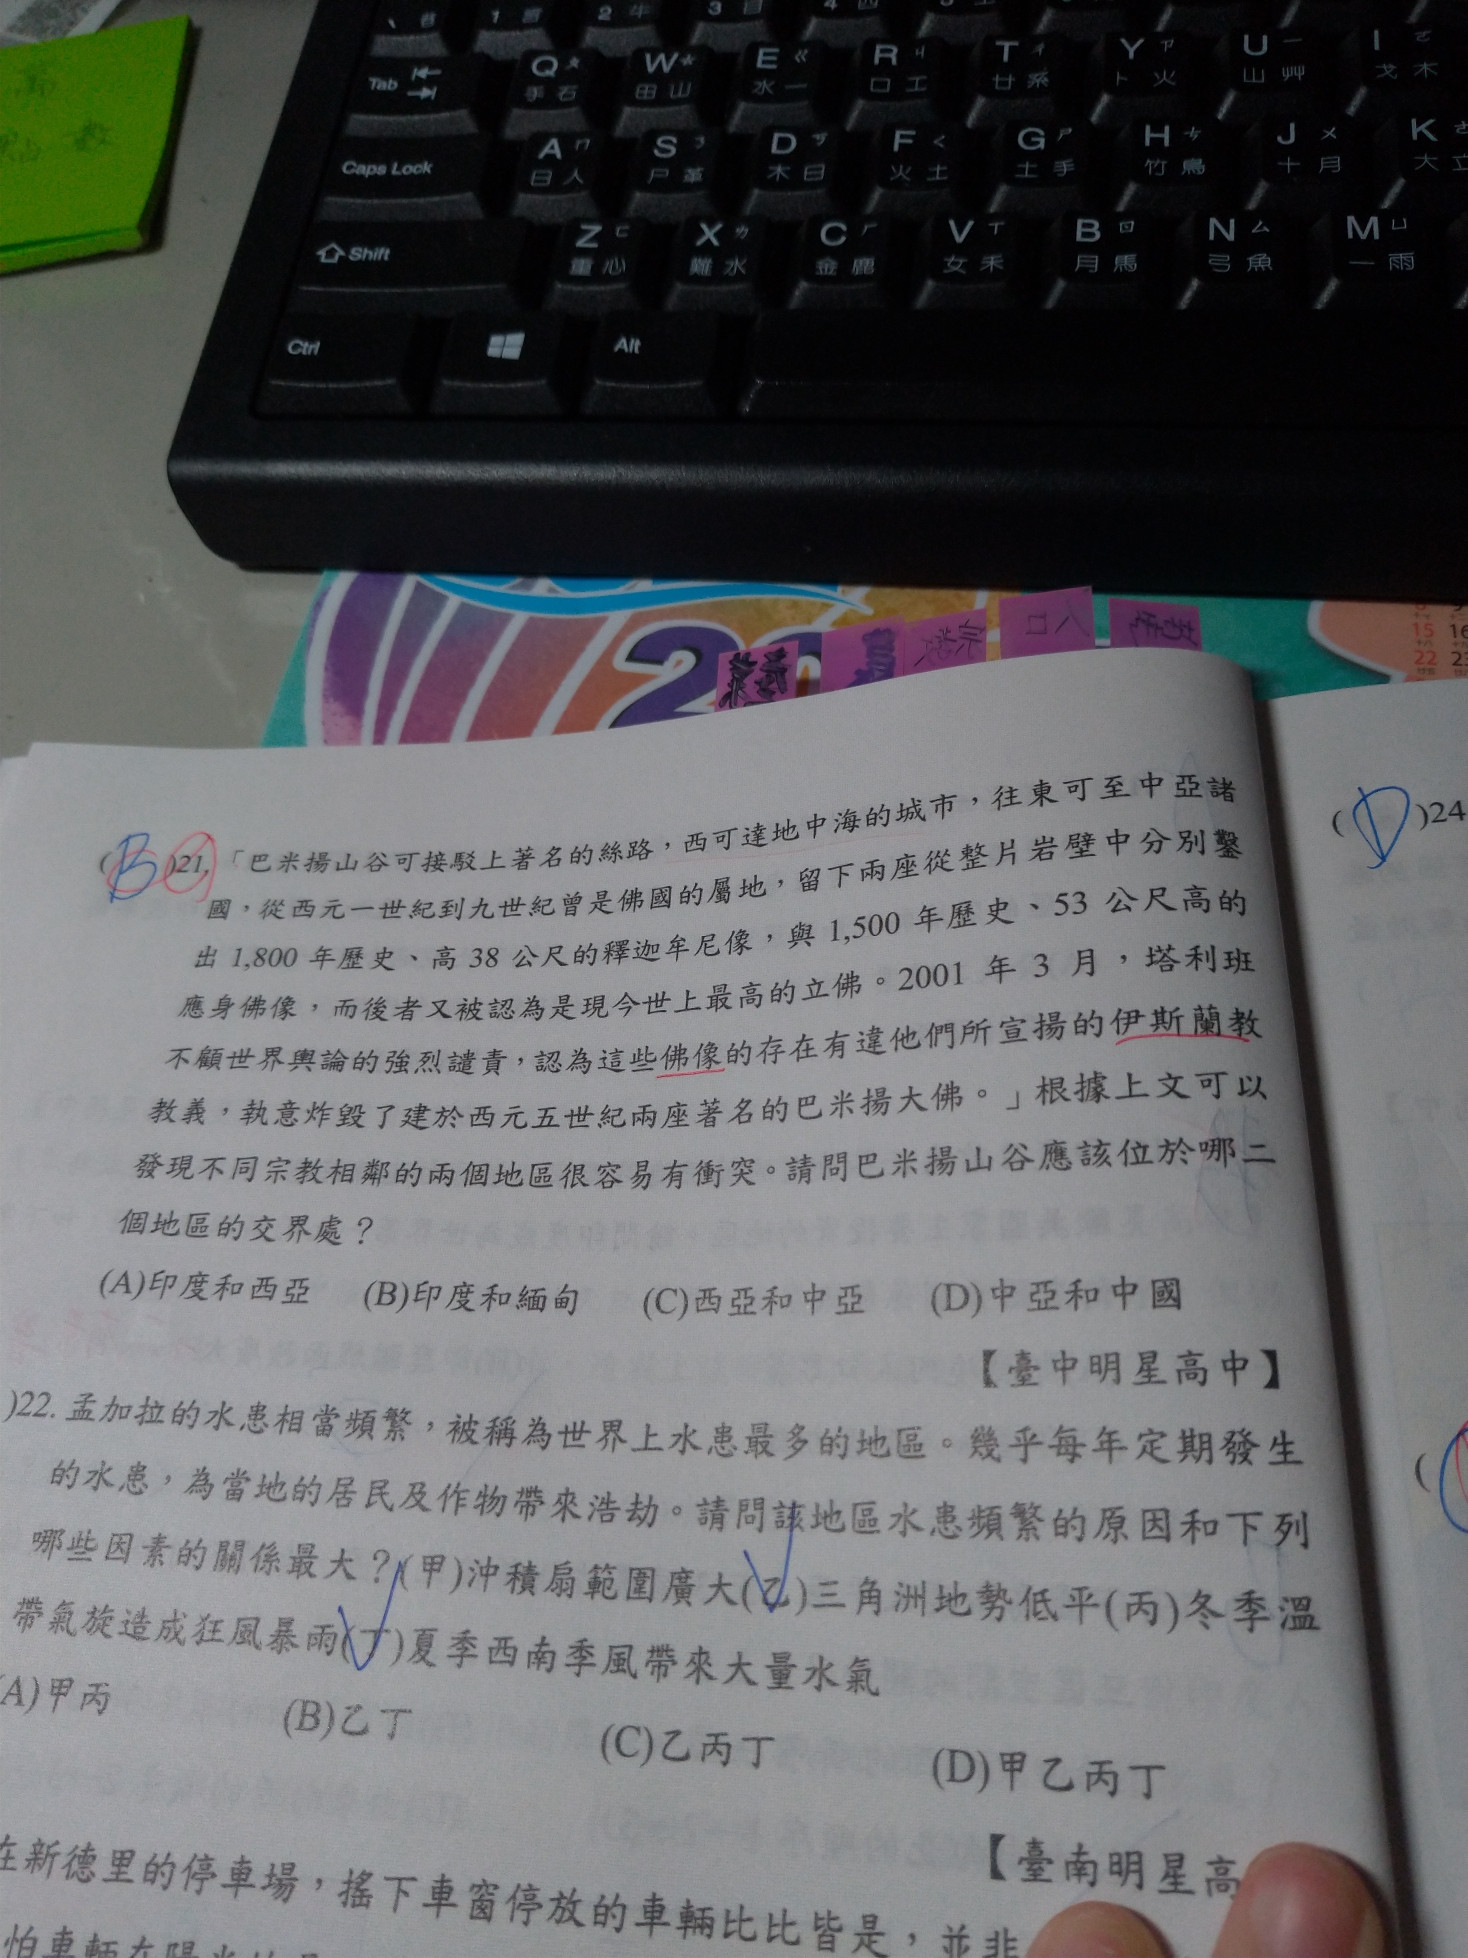 Tab
Q 手 石
W 田 山
E ㄍ 水 一
R ㄐ 口 工
T ㄔ 廿 系
Y ㄗ 卜 火
U ㄧ 山 艸
I ㄛ 戈 木
Caps Lock
A ㄇ 日 人
S ㄋ 尸 革
D ㄎ 木 日
F ㄑ 火 土
G ㄕ 土 手
H ㄘ 竹 鳥
J ㄨ 十 月
K ㄜ 大 立
Shift
Z ㄈ 重 心
X ㄌ 難 水
C ㄏ 金 鹿
V ㄒ 女 禾
B ㄖ 月 馬
N ㄙ 弓 魚
M ㄩ 一 雨
Ctrl
Alt
20
宗教
人口
15 16
22 23
(B)21.「巴米揚山谷可接駁上著名的絲路，西可達地中海的城市，往東可至中亞諸
國，從西元一世紀到九世紀曾是佛國的屬地，留下兩座從整片岩壁中分別鑿
出 1,800 年歷史、高 38 公尺的釋迦牟尼像，與 1,500 年歷史、53 公尺高的
應身佛像，而後者又被認為是現今世上最高的立佛。2001 年 3 月，塔利班
不顧世界輿論的強烈譴責，認為這些佛像的存在有違他們所宣揚的伊斯蘭教
教義，執意炸毀了建於西元五世紀兩座著名的巴米揚大佛。」根據上文可以
發現不同宗教相鄰的兩個地區很容易有衝突。請問巴米揚山谷應該位於哪二
個地區的交界處？
(A)印度和西亞 (B)印度和緬甸 (C)西亞和中亞 (D)中亞和中國
【臺中明星高中】
)22. 孟加拉的水患相當頻繁，被稱為世界上水患最多的地區。幾乎每年定期發生
的水患，為當地的居民及作物帶來浩劫。請問該地區水患頻繁的原因和下列
哪些因素的關係最大？(甲)沖積扇範圍廣大(乙)三角洲地勢低平(丙)冬季溫
帶氣旋造成狂風暴雨(丁)夏季西南季風帶來大量水氣
(A)甲丙 (B)乙丁 (C)乙丙丁 (D)甲乙丙丁
【臺南明星高
在新德里的停車場，搖下車窗停放的車輛比比皆是，並非
怕車輛在
(D)24
(